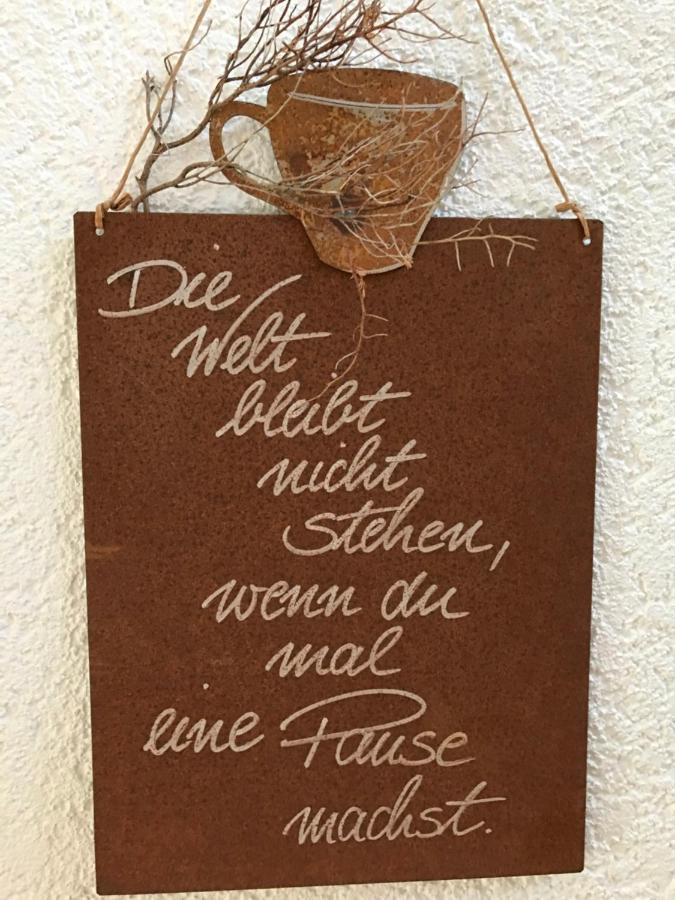 Die
Welt
bleibt
nicht
stehen,
wenn du
mal
eine Pause
machst.